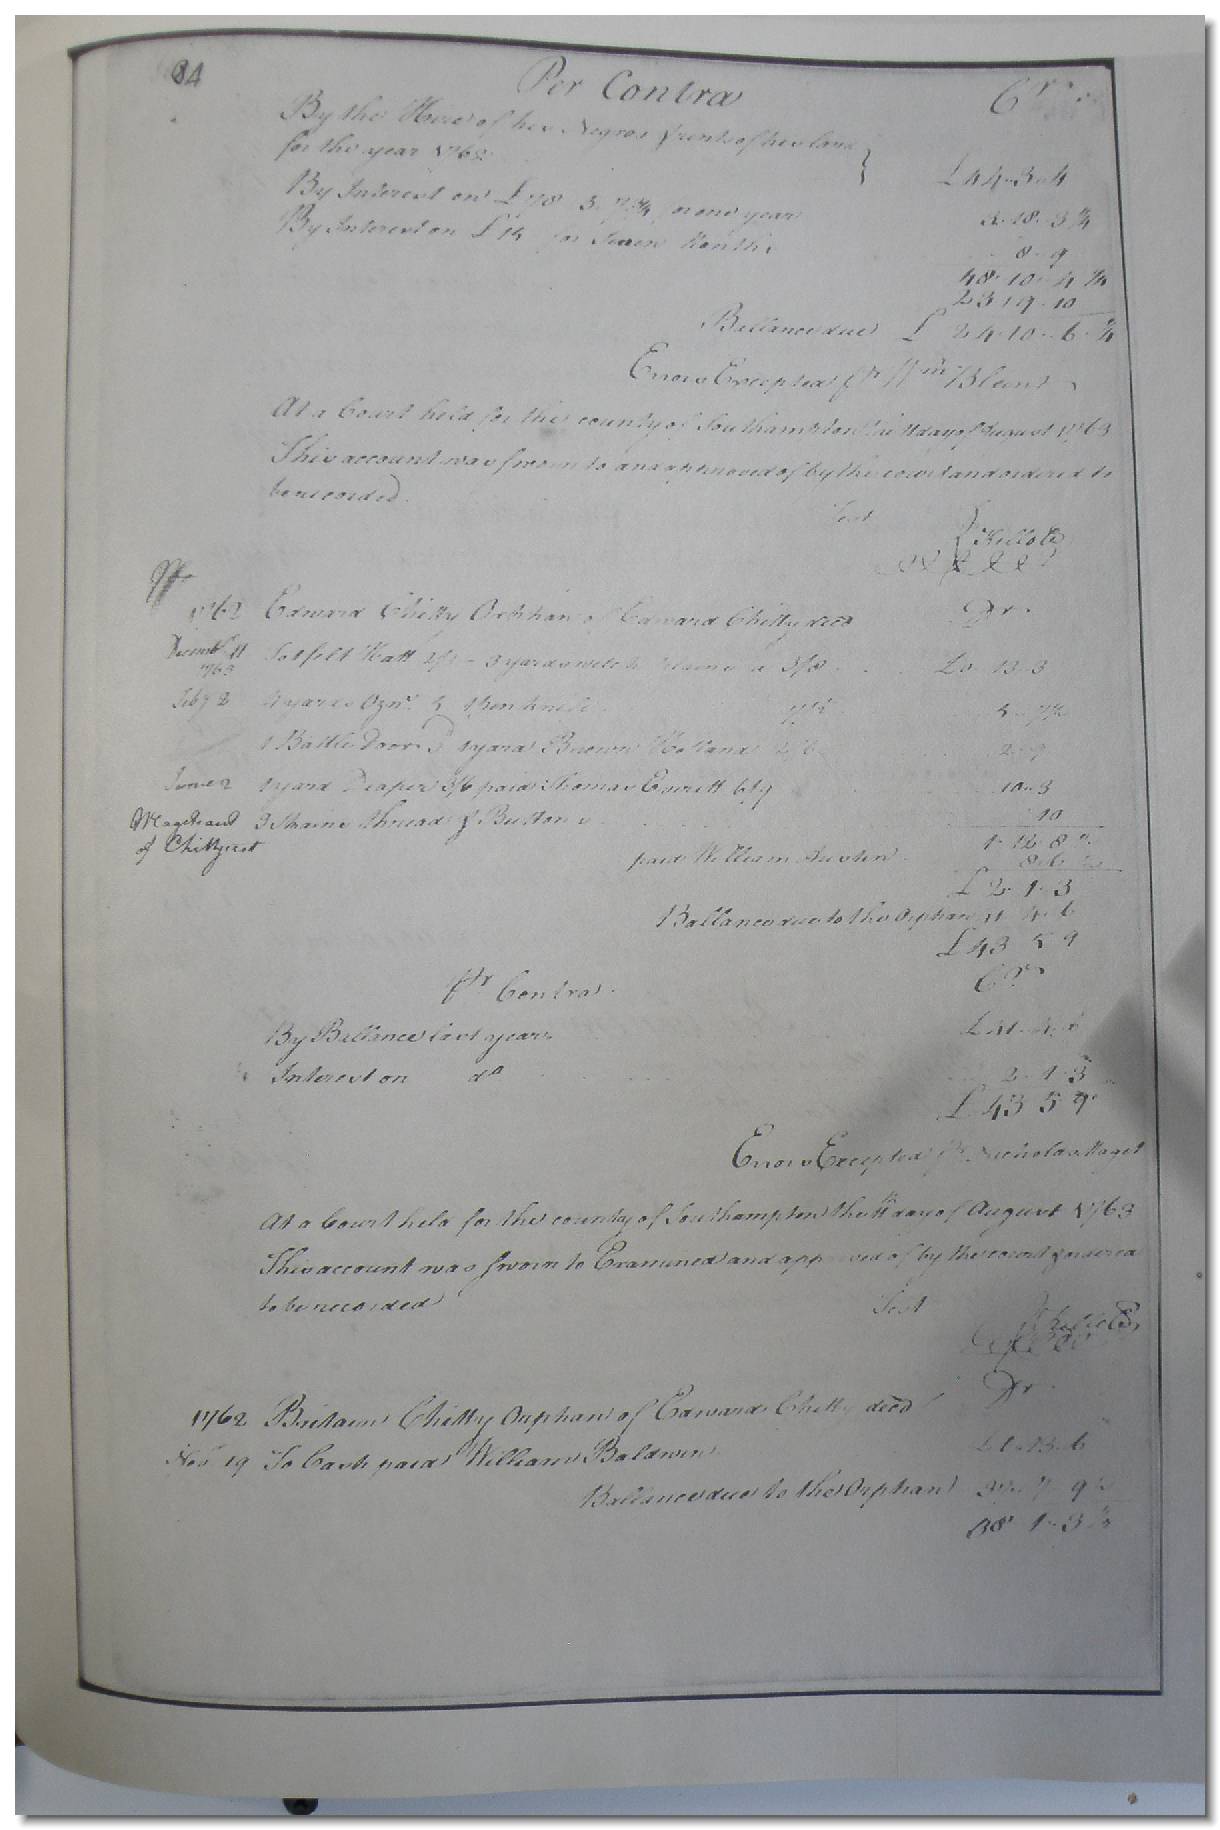 84
Per Contra Cr
By the Hire of her Negroes & rents of her land
for the year 1762 £44-3-4
By Interest on £78 5. 7¾ for one year 3.18.3¼
By Interest on £15 for Seven Months 8-9
48-10-4¼
23 19-10
Ballance due £ 24-10-6-¼
Errors Excepted pr Wm Blunt
At a Court held for the county of Southampton the 11 day of August 1763
This account was sworn to and approved of by the court and ordered to
be recorded.
Test
1762 Edward Chitty Orphan of Edward Chitty decd Dr.
Decembr 11 To 1 felt Hatt 2/ - 3 yards 3/8 £0-13-3
1763
Feby 2 4 yards Oznr. & 1 pen knife 7½ 5-7½
1 Battle Door & 1 yard Brown Holland 2-9
June 2 1 yard Diaper 3/6 paid Thomas Everett 6/9 10-3
Maget acct 3 Skains thread & Buttons 10
of Chitty est 1-12-8½
paid William Austin 8.6½
£2-1-3
Ballance due to the Orphan 41 4-6
£43 5 9
Pr Contra Cr
By Ballance last year £41-4-6
Interest on do 2-1-3
£43 5 9
Errors Excepted pr Nicholas Maget
At a Court held for the county of Southampton the 11th day of August 1763
This account was sworn to Examined and approved of by the court & ordered
to be recorded
Test
Dr.
1762 Britain Chitty Orphan of Edward Chitty decd
Nov 19 To Cash paid William Baldwin £1-13-6
Ballance due to the Orphan 7 9½
38 1-3½